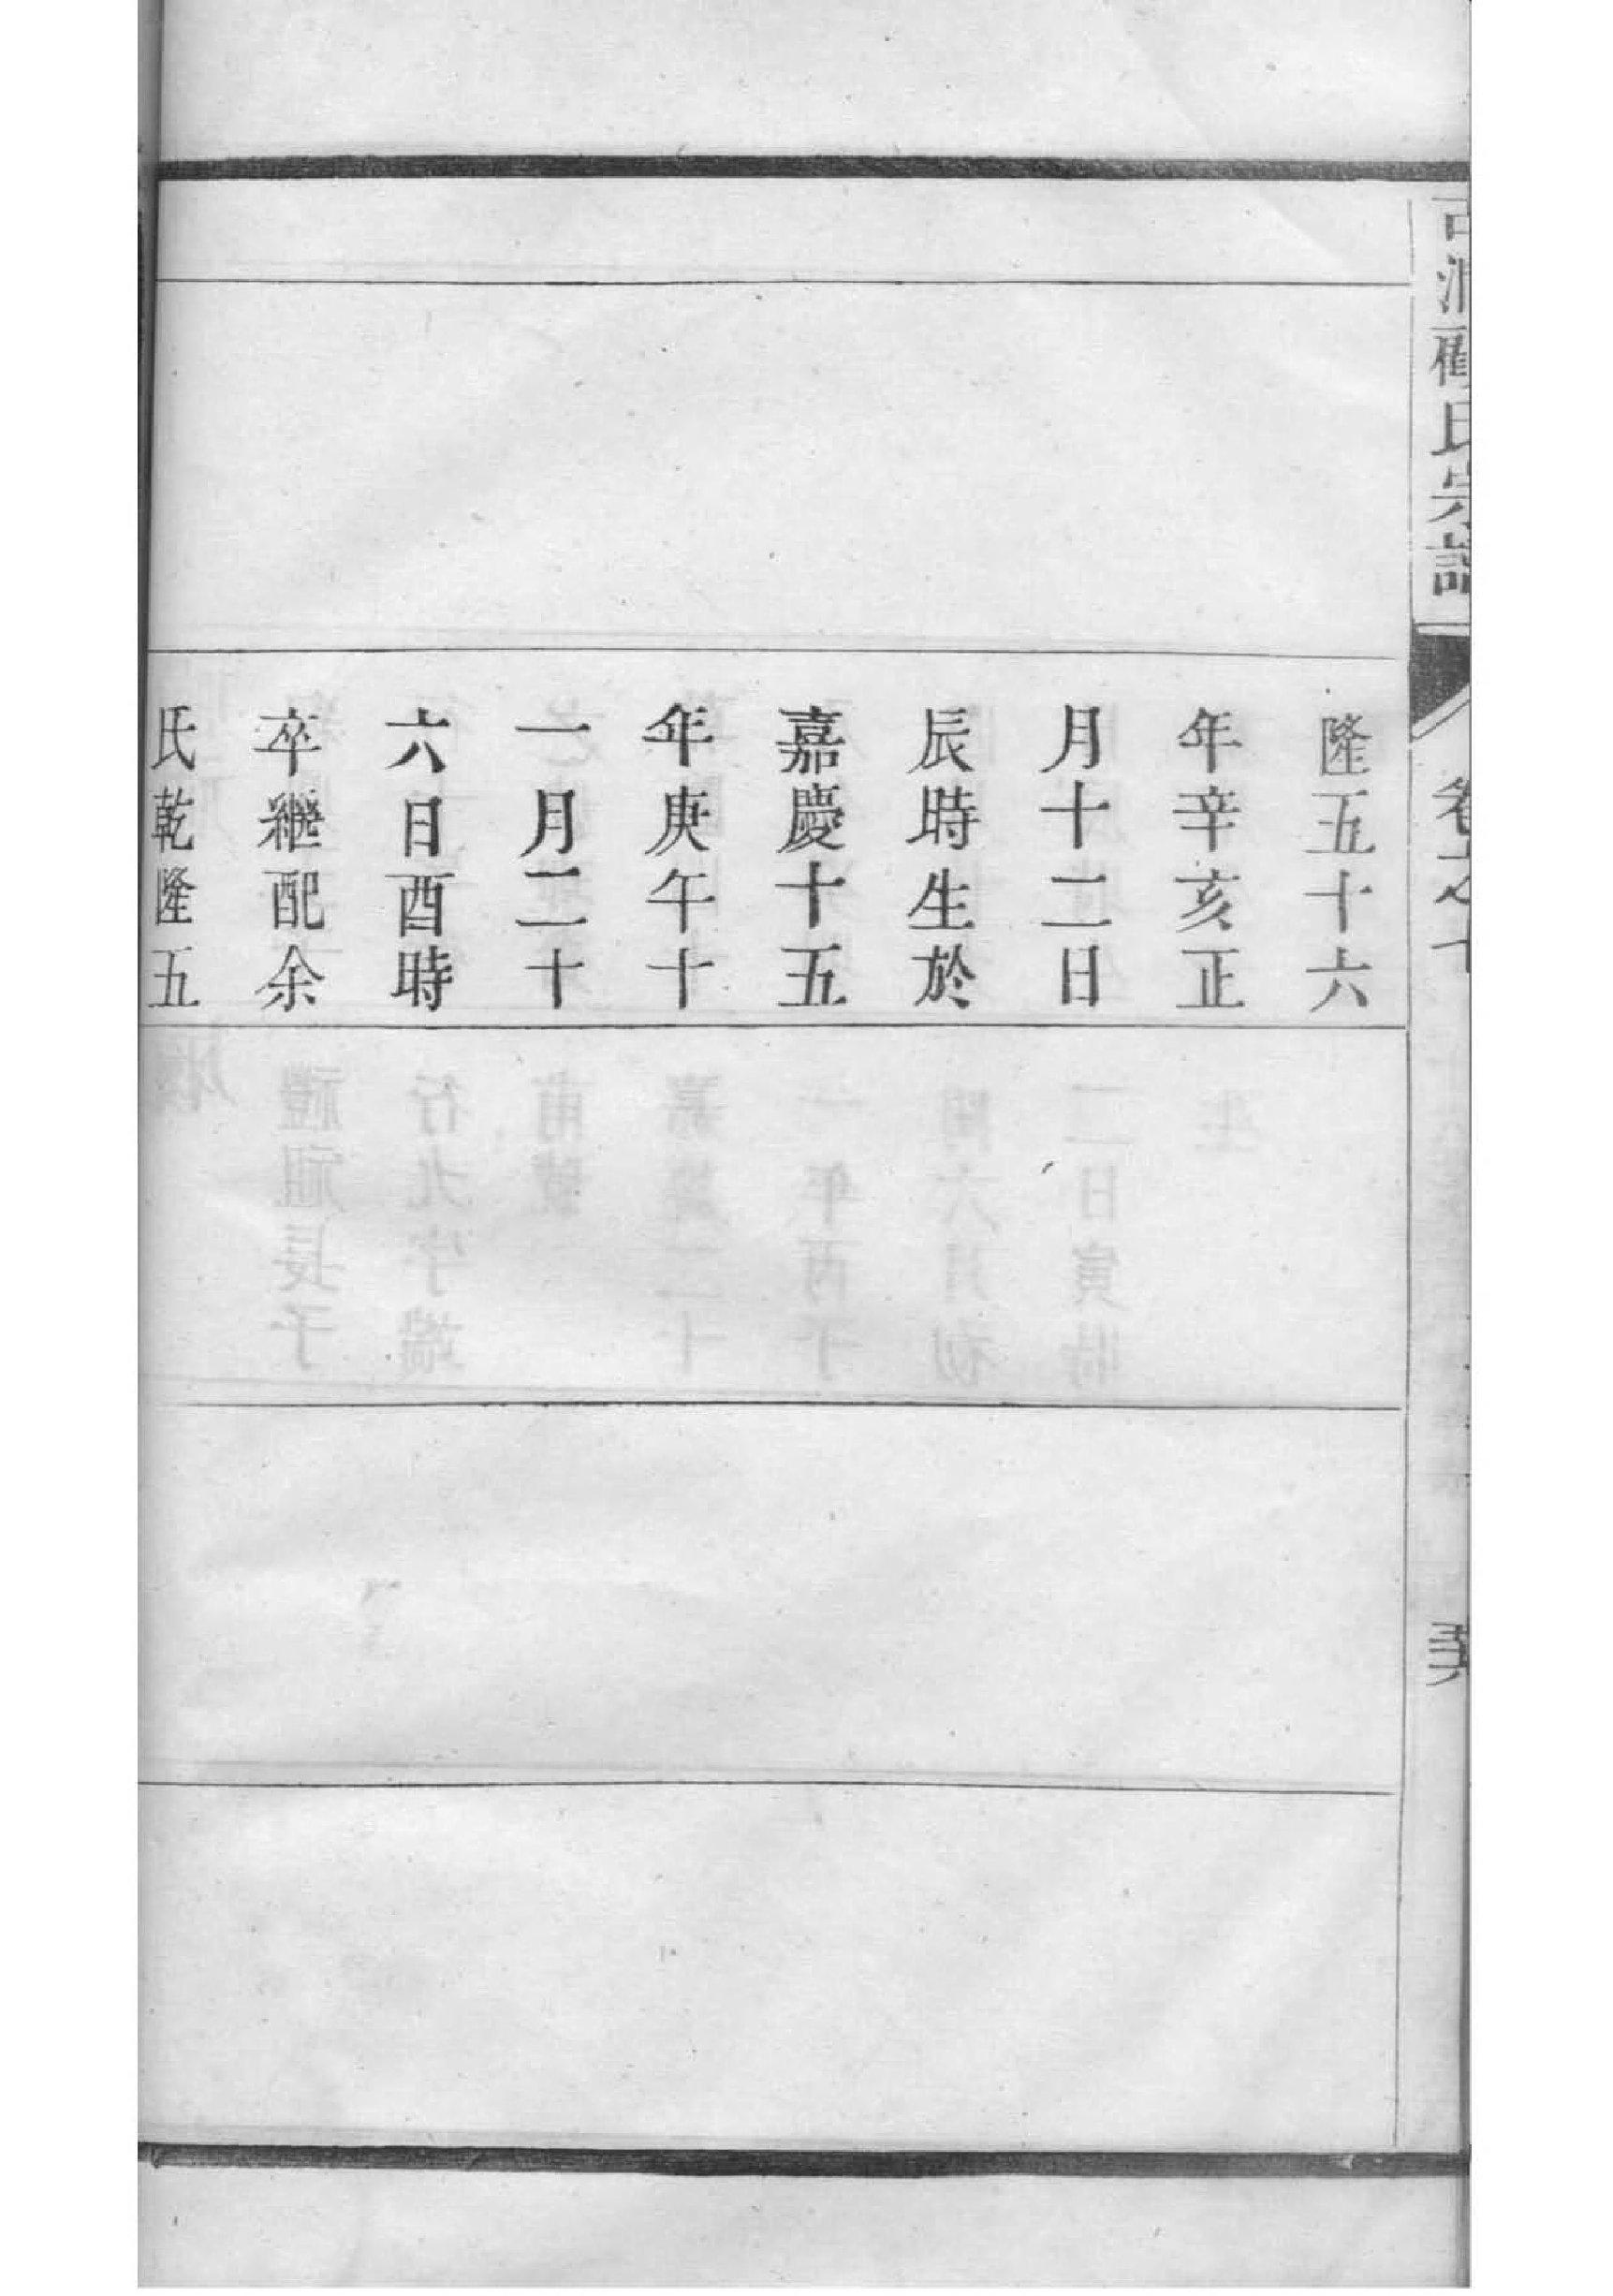 顧氏宗譜
卷之
隆五十六
年辛亥正
月十二日
辰時生於
嘉慶十五
年庚午十
一月二十
六日酉時
卒繼配余
氏乾隆五